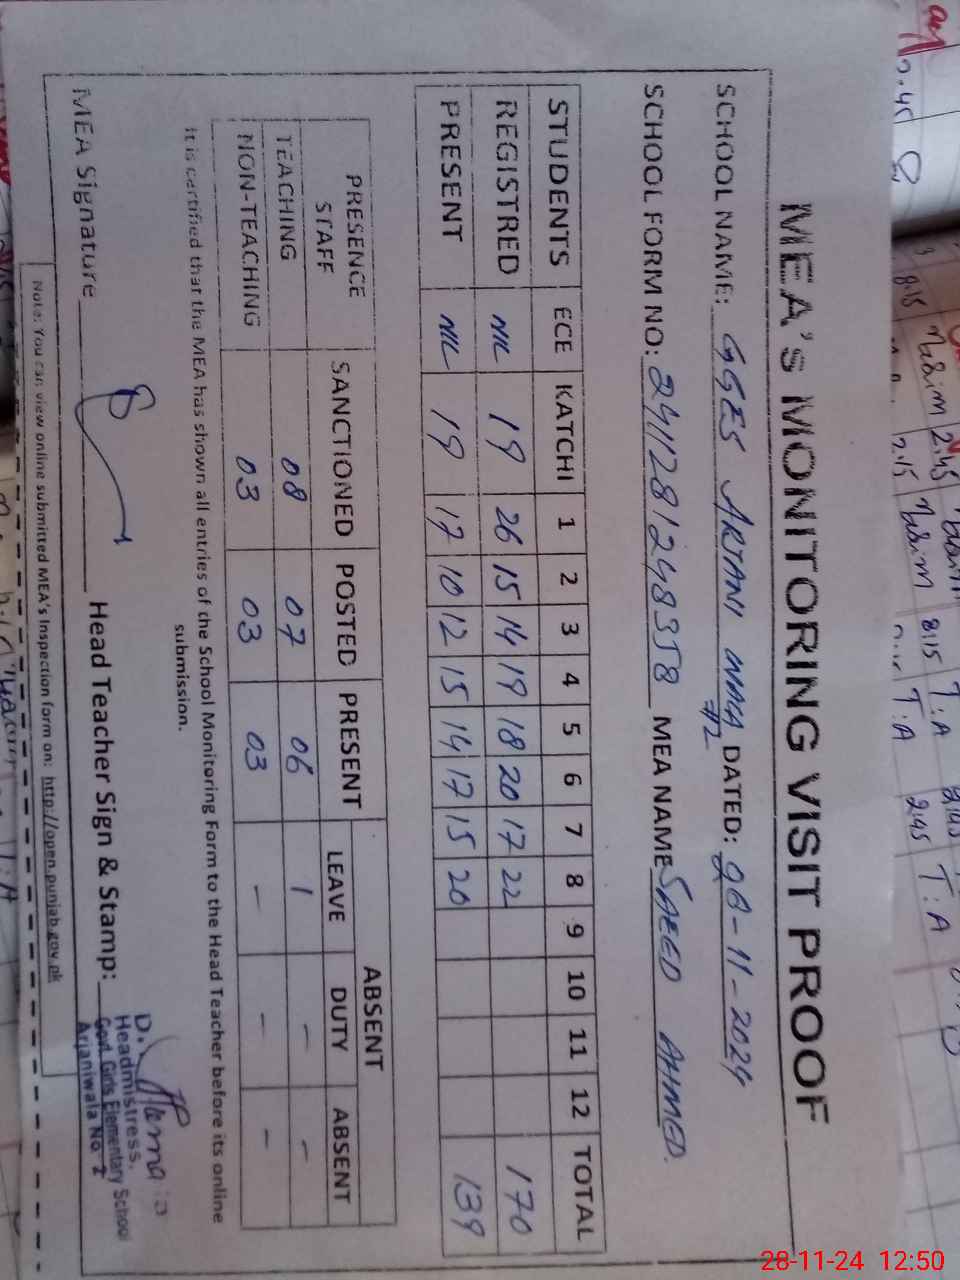 MEA's MONITORING VISIT PROOF
SCHOOL NAME: GGES ARJANI WALA #2 DATED: 28-11-2024
SCHOOL FORM NO: 241128124838358 MEA NAME SAEED AHMED.
STUDENTS ECE KATCHI 1 2 3 4 5 6 7 8 9 10 11 12 TOTAL
REGISTRED NIL 19 26 15 14 19 18 20 17 22 170
PRESENT NIL 19 17 10 12 15 14 17 15 20 139
PRESENCE STAFF SANCTIONED POSTED PRESENT ABSENT
LEAVE DUTY ABSENT
TEACHING 08 07 06 1 - -
NON-TEACHING 03 03 03 - - -
It is certified that the MEA has shown all entries of the School Monitoring Form to the Head Teacher before its online
submission.
MEA Signature Head Teacher Sign & Stamp:
Headmistress.
Govt. Girls Elementary School
Arjaniwala No. 2
Note: You can view online submitted MEA's Inspection form on: http://open.punjab.gov.pk
2.45
8.15
Nasim 2.45
2.15
Nasim 8:15
T:A
T:A
2:45 T:A
28-11-24 12:50